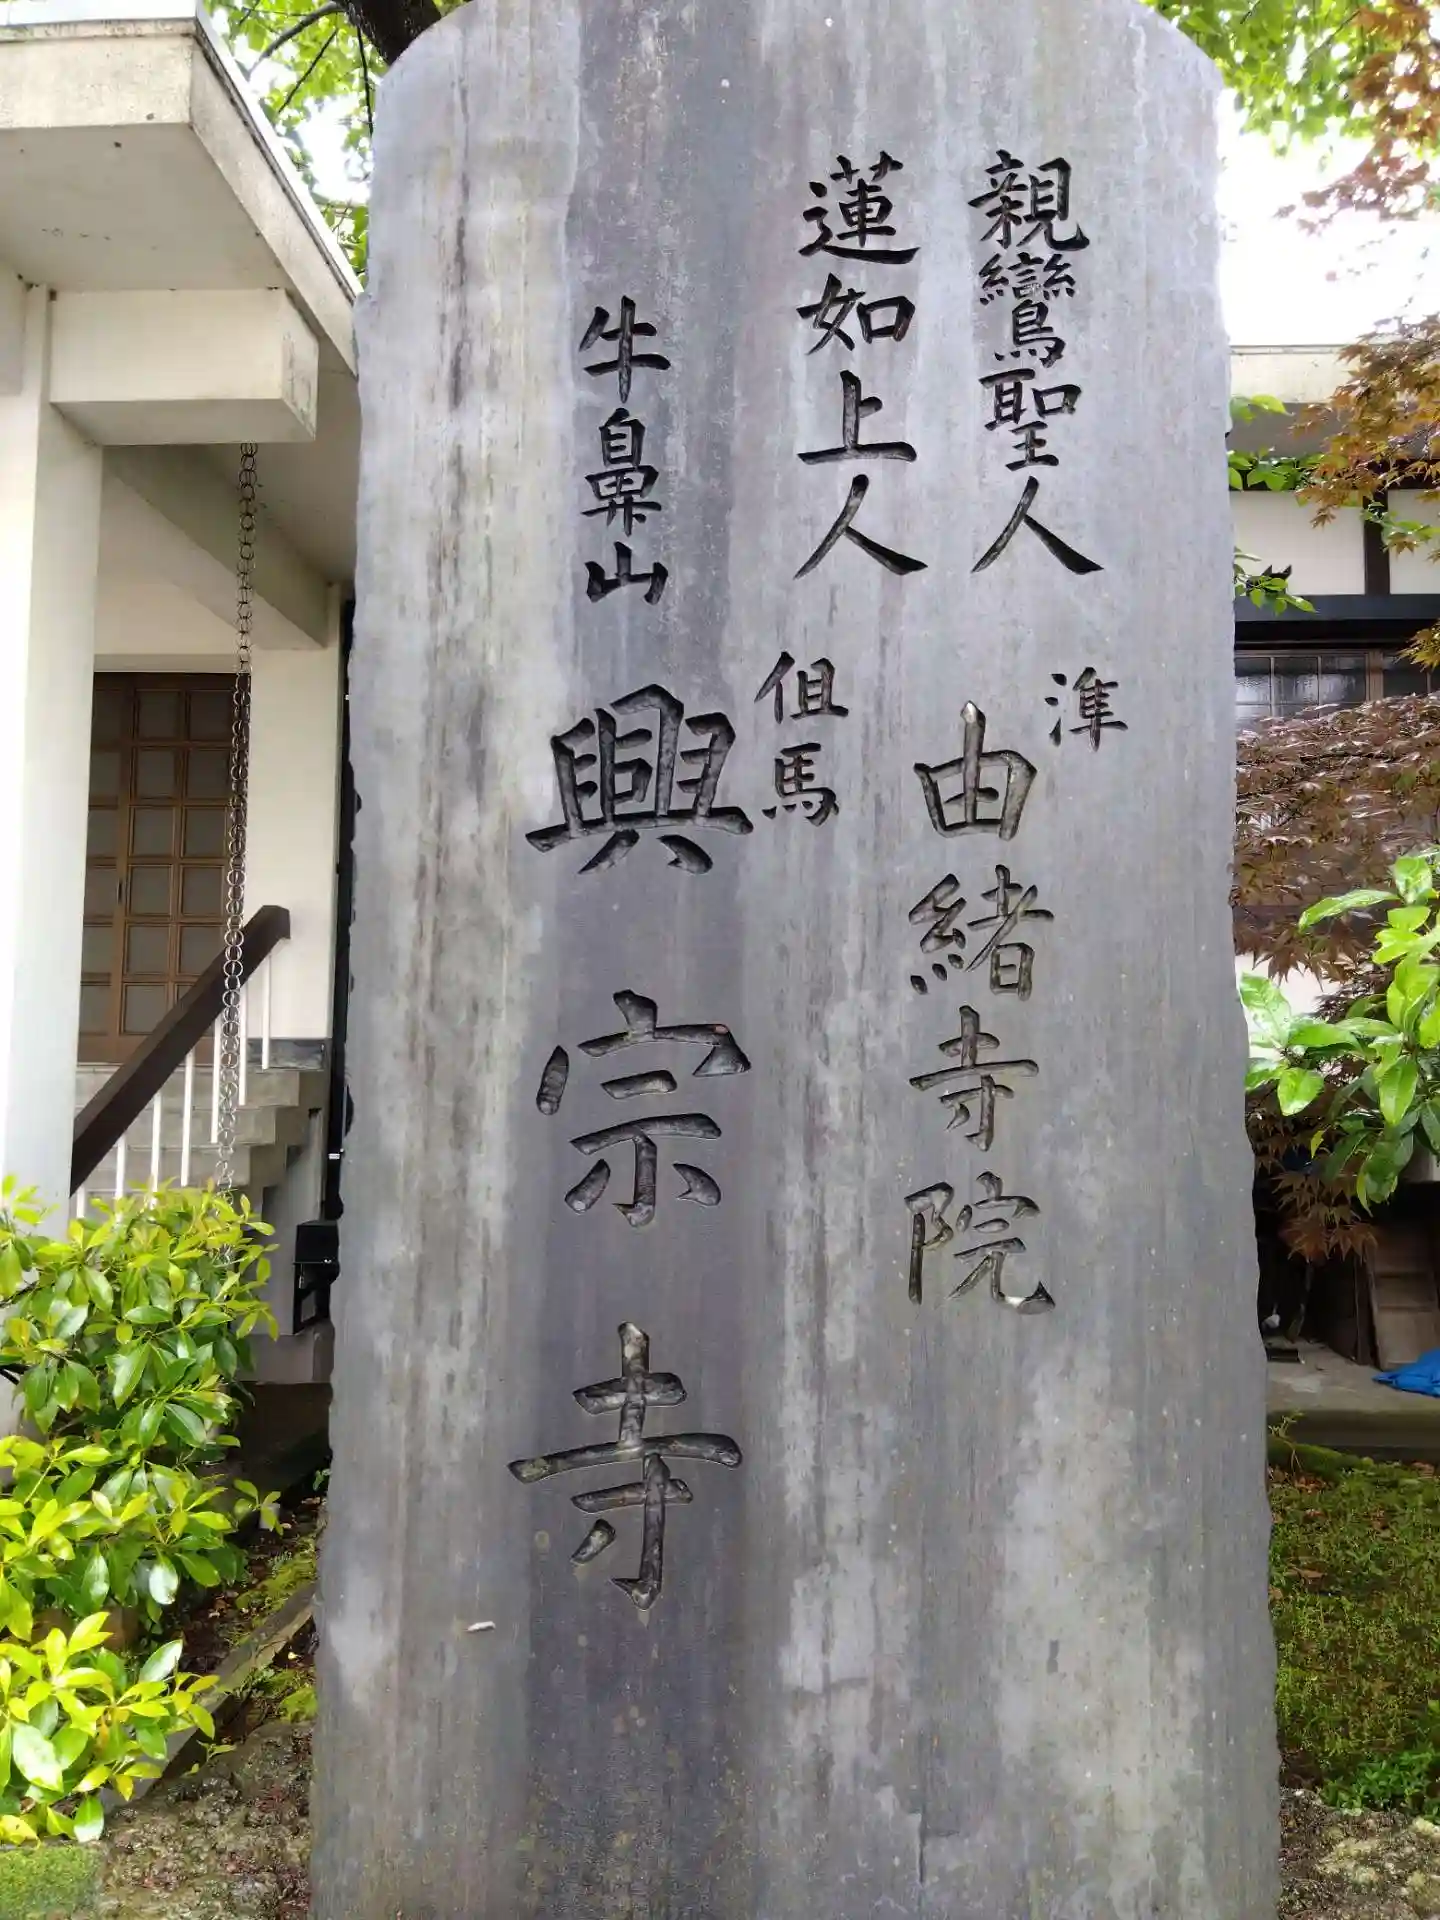 親鸞聖人
蓮如上人
準由緒寺院
但馬
牛鼻山
興宗寺